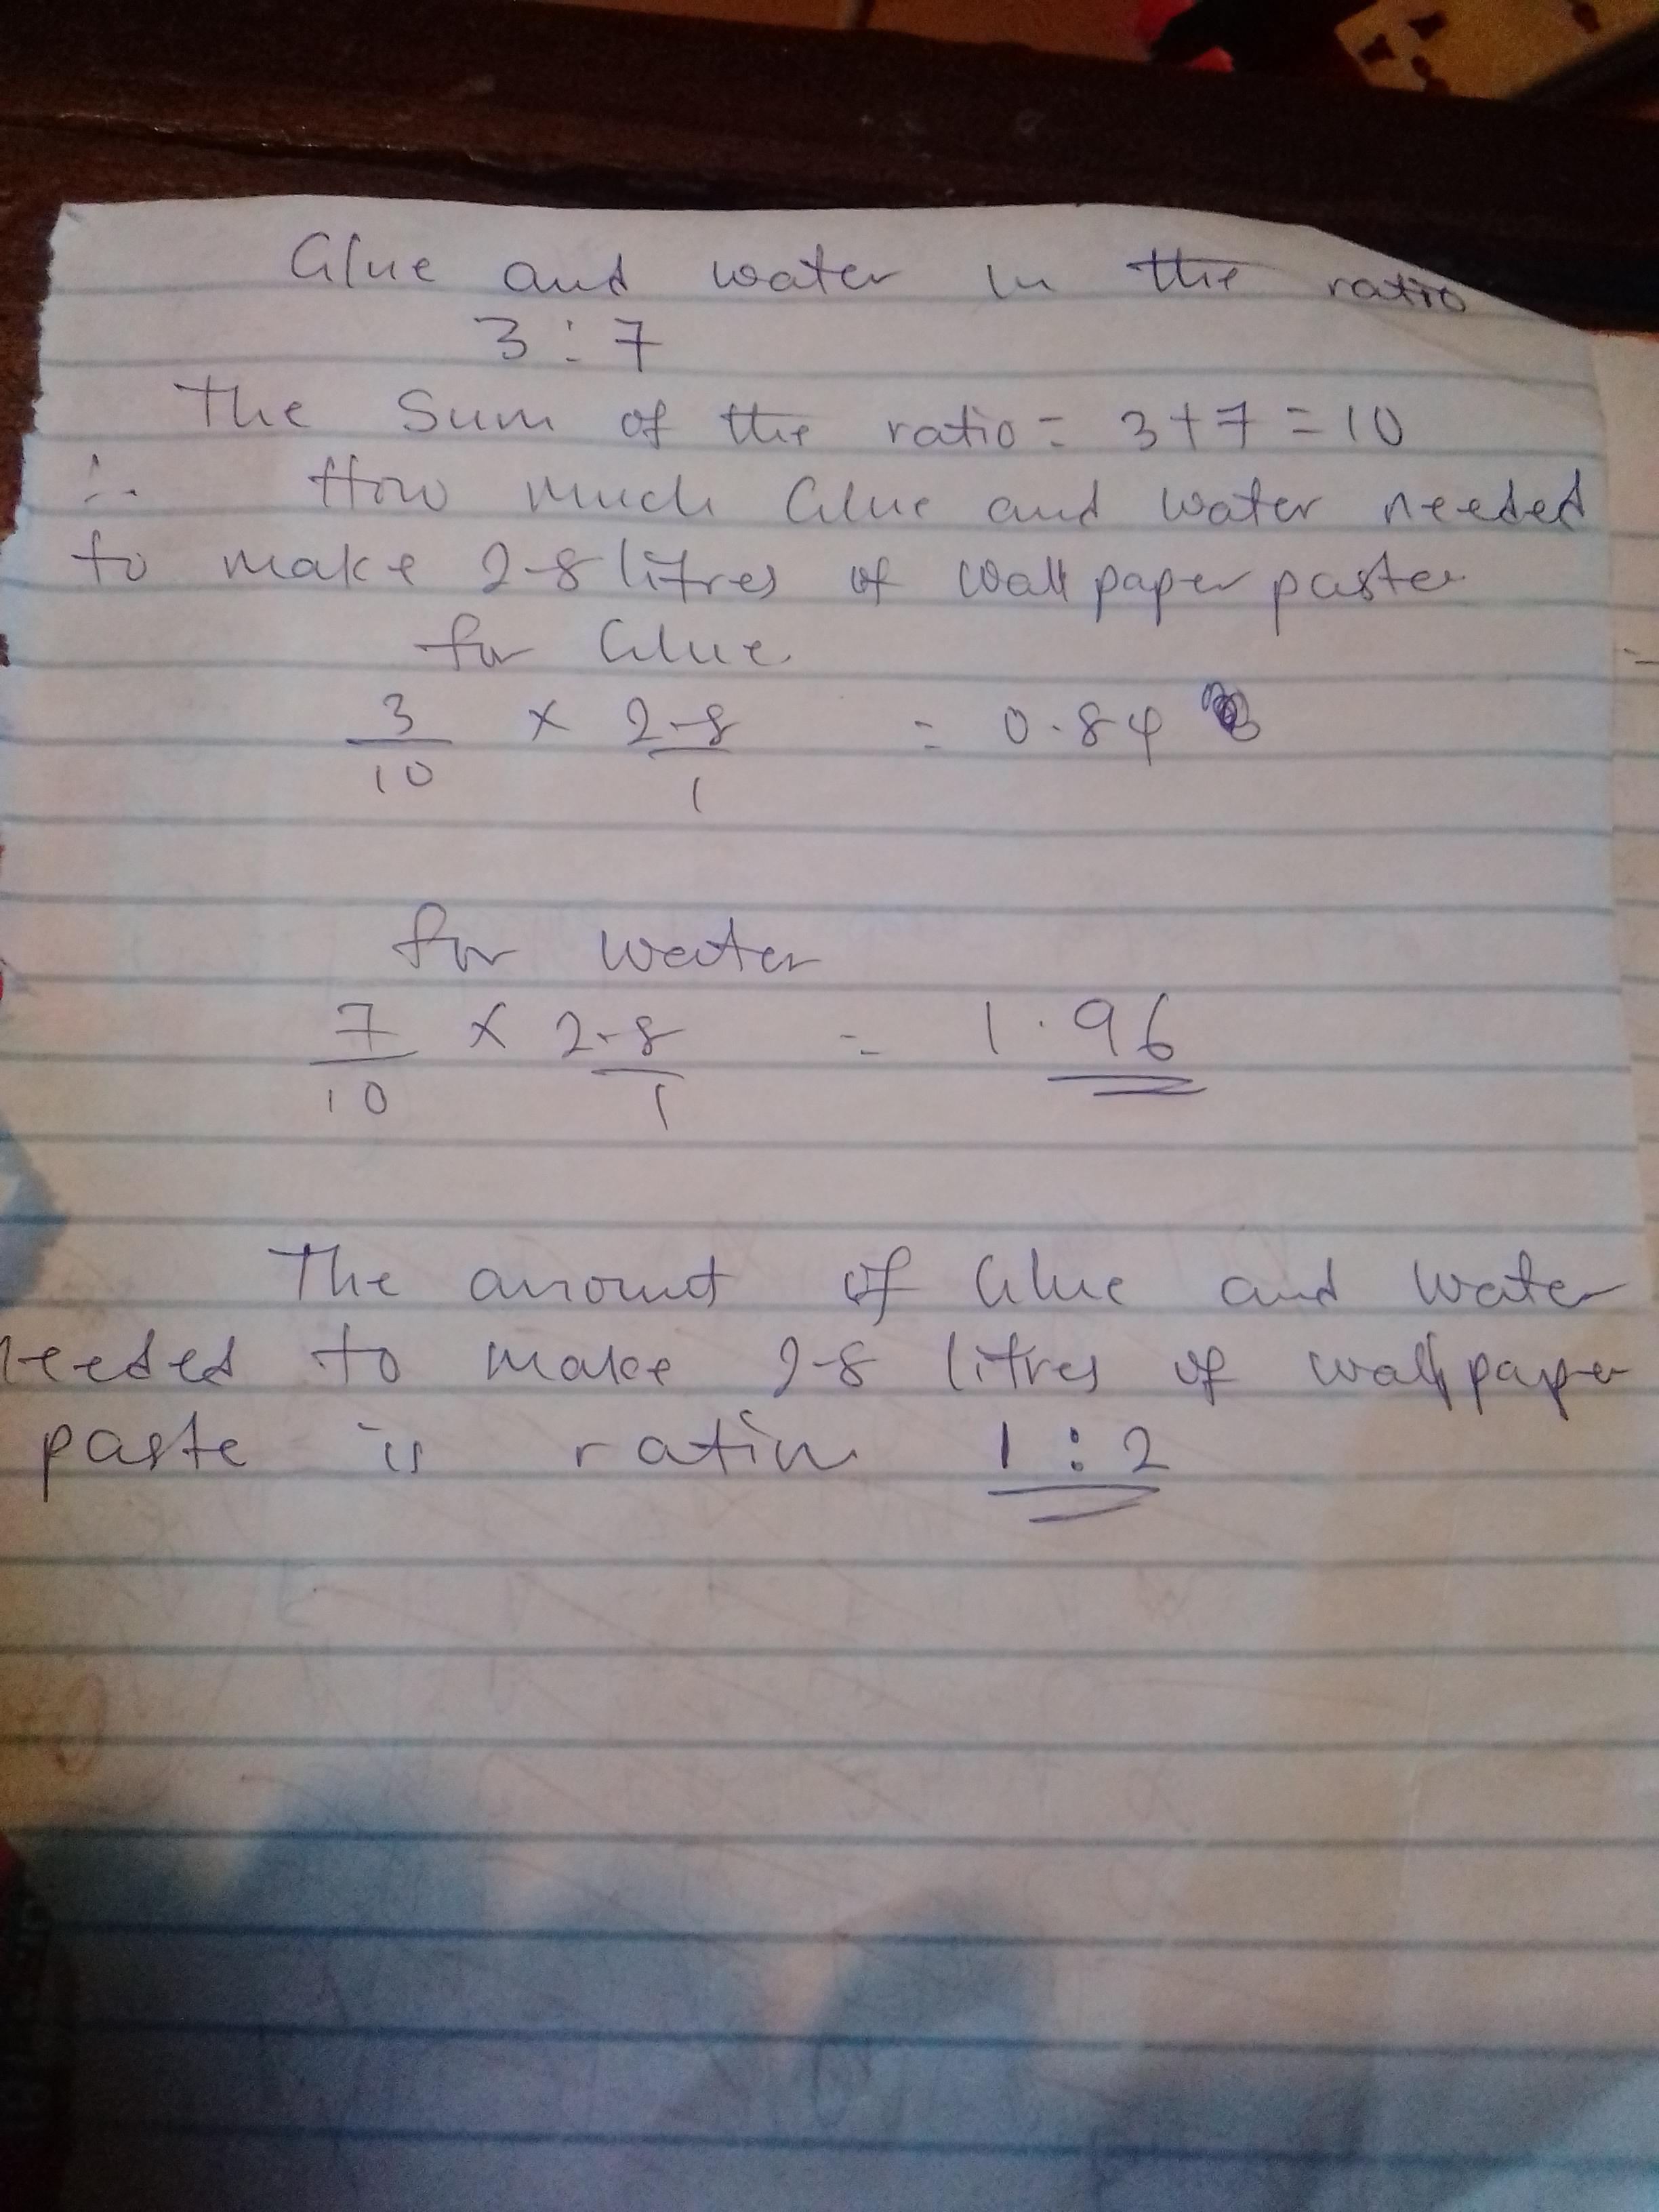 Glue and water in the ratio
3 : 7
The Sum of the ratio = 3+7 = 10
∴ How much Glue and water needed
to make 2.8 litres of wall paper paste
for Glue
3/10 × 2.8/1 = 0.84
for water
7/10 × 2.8/1 = 1.96
The amount of Glue and Water
needed to make 2.8 litres of wallpaper
paste is 1 : 2